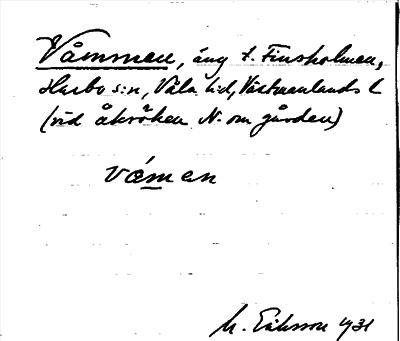 Våmmen, äng t. Finsholmen,
Harbo s:n, Våla hd, Västmanlands l
(vid åkröken N. om gården)
våmen
M. Eriksson 1931